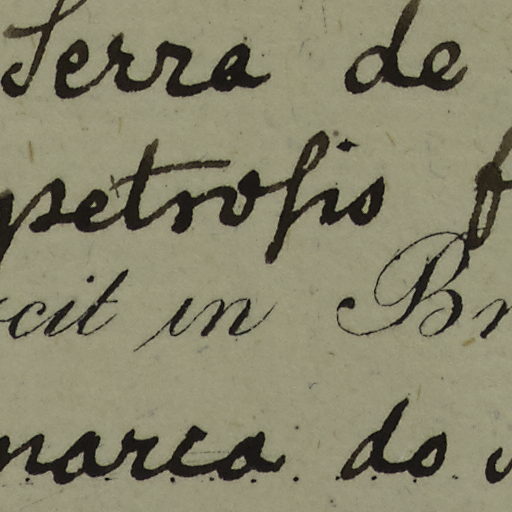 Serra de
psetrosis f
cit in Br
marca do